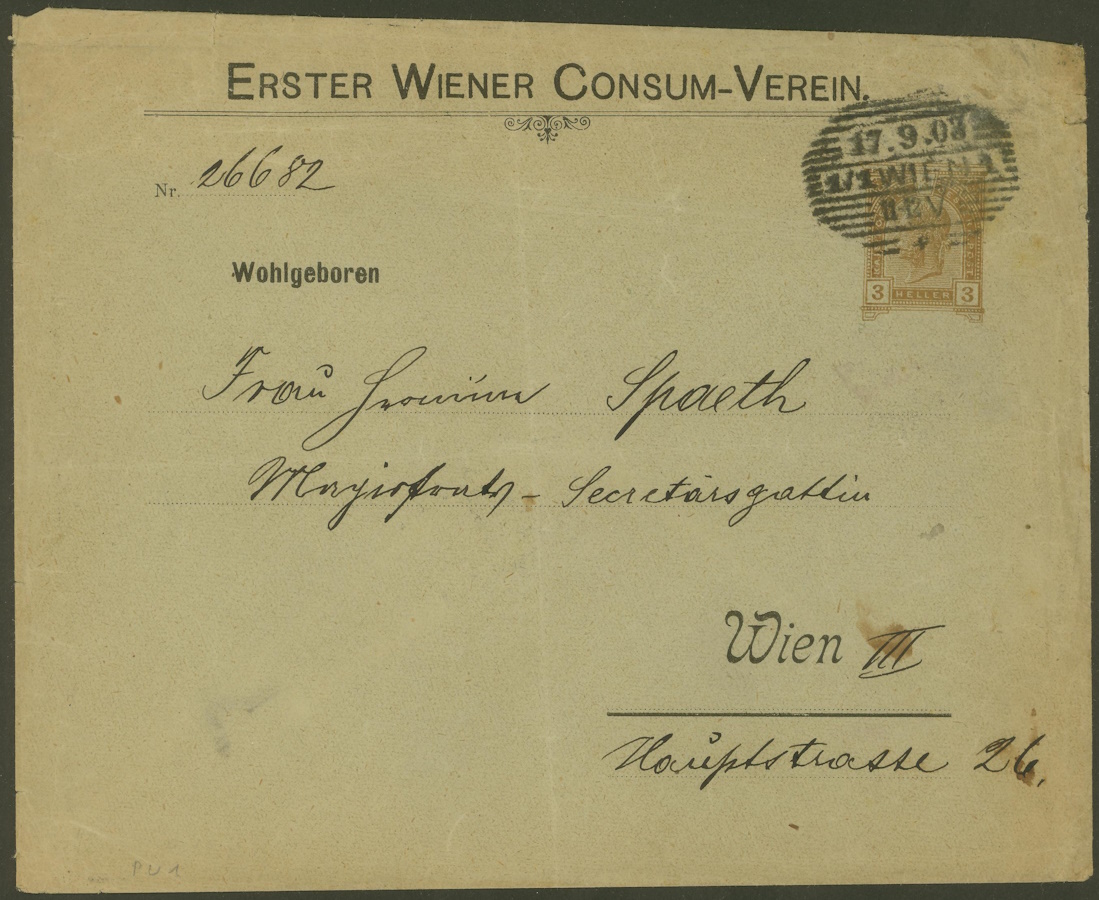 ERSTER WIENER CONSUM-VEREIN.
Nr. 26682
17.9.03
1/1 WIEN 1
3 HELLER 3
Wohlgeboren
Frau Spaeth
Magistrats - Secretärsgattin
Wien III
Hauptstrasse 26.
PU 1